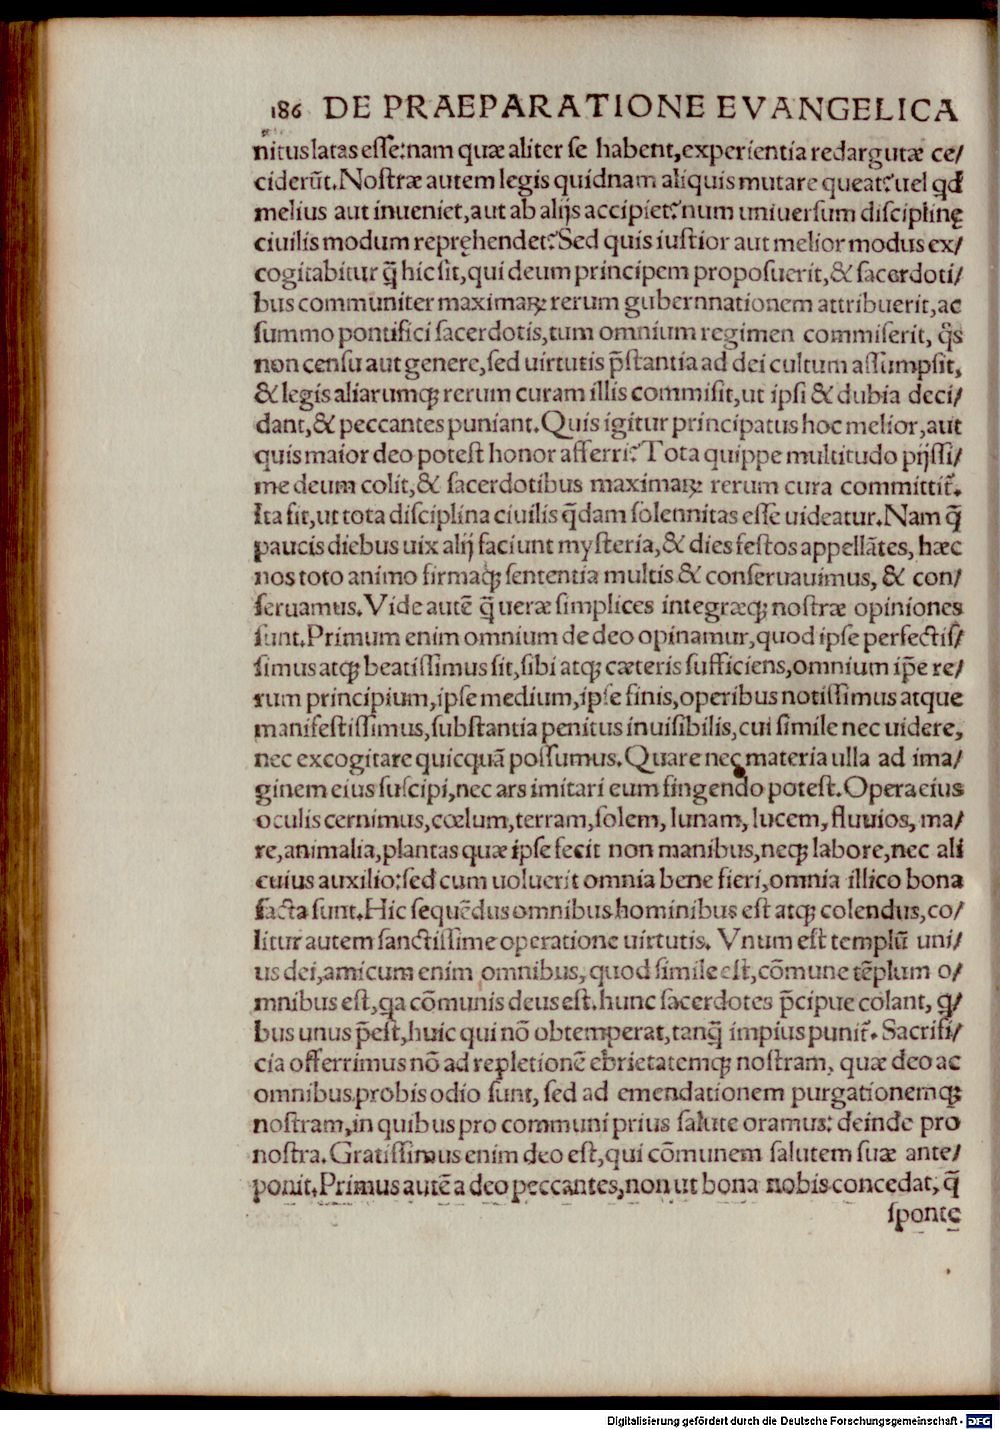 186 DE PRAEPARATIONE EVANGELICA
nitus latas esse: nam quæ aliter se habent, experientia redargutæ ce/
ciderūt. Nostræ autem legis quidnam aliquis mutare queat? uel qd
melius aut inueniet, aut ab alijs accipiet? num uniuersum disciplinę
ciuilis modum repręhendet? Sed quis iustior aut melior modus ex/
cogitabitur q̄ hic sit, qui deum principem proposuerit, & sacerdoti/
bus communiter maximaꝝ rerum gubernnationem attribuerit, ac
summo pontifici sacerdotis, tum omnium regimen commiserit, q̄s
non censu aut genere, sed uirtutis p̄stantia ad dei cultum assumpsit,
& legis aliarumqꝫ rerum curam illis commisit, ut ipsi & dubia deci/
dant, & peccantes puniant. Quis igitur principatus hoc melior, aut
quis maior deo potest honor afferri? Tota quippe multitudo pijssi/
me deum colit, & sacerdotibus maximaꝝ rerum cura committit̃.
Ita fit, ut tota disciplina ciuilis q̄dam solennitas esse uideatur. Nam q̄
paucis diebus uix alij faciunt mysteria, & dies festos appellātes, hæc
nos toto animo firmaqꝫ sententia multis & conseruauimus, & con/
seruamus. Vide autē q̄ ueræ simplices integræqꝫ nostræ opiniones
sunt. Primum enim omnium de deo opinamur, quod ipse perfectis/
simus atqꝫ beatissimus sit, sibi atqꝫ cæteris sufficiens, omnium ip̄e re/
rum principium, ipse medium, ipse finis, operibus notissimus atque
manifestissimus, substantia penitus inuisibilis, cui simile nec uidere,
nec excogitare quicquā possumus. Quare nec materia ulla ad ima/
ginem eius suscipi, nec ars imitari eum fingendo potest. Opera eius
oculis cernimus, cœlum, terram, solem, lunam, lucem, fluuios, ma/
re, animalia, plantas quæ ipse fecit non manibus, neqꝫ labore, nec ali
cuius auxilio: sed cum uoluerit omnia bene fieri, omnia illico bona
facta sunt. Hic sequēdus omnibus hominibus est atqꝫ colendus, co/
litur autem sanctissime operatione uirtutis. Vnum est templū uni/
us dei, amicum enim omnibus, quod simile est, cōmune tēplum o/
mnibus est, qa cōmunis deus est. hunc sacerdotes p̄cipue colant, q/
bus unus p̄est, huic qui nō obtemperat, tanq̄ impius punit̃. Sacrifi/
cia offerrimus nō ad repletionē ebrietatemqꝫ nostram, quæ deo ac
omnibus probis odio sunt, sed ad emendationem purgationemqꝫ
nostram, in quibus pro communi prius salute oramus: deinde pro
nostra. Gratissimus enim deo est, qui cōmunem salutem suæ ante/
ponit. Primus autē a deo peccantes, non ut bona nobis concedat, q̄
sponte
Digitalisierung gefördert durch die Deutsche Forschungsgemeinschaft - DFG